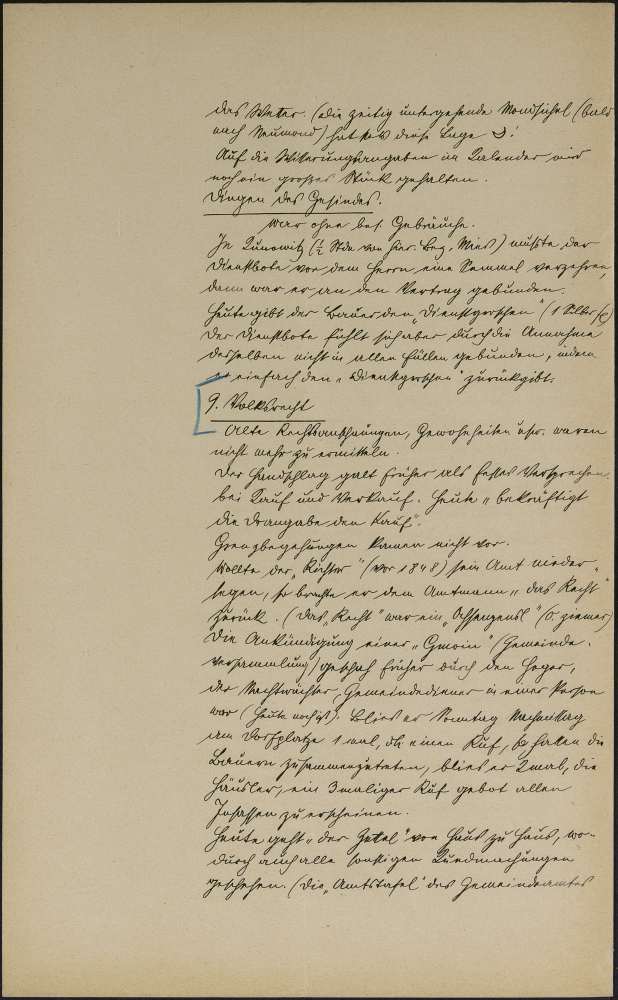 das Wetter. (Die zeitig untergehende Mondsichel (bald
nach Neumond) hat diese Lage
Auf die Witterungsangaben im Kalender wird
noch ein großes Stück gehalten.
Dingen des Gesindes.
war ohne bes. Gebräuche.
In Kunowitz (½ Stde von hier. Bez. Mies) mußte der
Dienstbote vor dem Herrn eine Semmel verzehren,
dann war er an den Vertrag gebunden.
Heute gibt der Bauer den „Dienstgroschen" (1 Silber
Der Dienstbote fühlt sich aber durch die Annahme
desselben nicht in allen Fällen gebunden, indem
er einfach den „Dienstgroschen" zurückgibt.
9. Volksrecht
Alte Rechtsanschauungen, Gewohnheiten usw. waren
nicht mehr zu ermitteln.
Der Handschlag galt früher als festes Versprechen
bei Kauf und Verkauf. Heute „bekräftigt
die Drangabe den Kauf".
Grenzbegehungen kamen nicht vor.
Wollte der „Richter" (vor 1848) sein Amt nieder-
legen, so brachte er dem Amtmann „das Recht"
zurück. (Das „Recht" war ein „Ochsengensl" (O. ziemer)
Die Ankündigung einer „Gmoin" (Gemeinde-
versammlung) geschah früher durch den Heger,
der Nachtwächter, Gemeindediener in einer Person
war (heute noch ist). Blies er Sonntag Nachmittag
am Dorfplatze 1 mal, dh einen Ruf, so hatten die
Bauern zusammenzutreten, blies er 2mal, die
Häusler, ein 3maliger Ruf gebot allen
Insassen zu erscheinen.
Heute geht „der Zettel" von Haus zu Haus, wo-
durch auch alle sonstigen Kundmachungen
geschehen. (Die „Amtstafel" des Gemeindeamtes